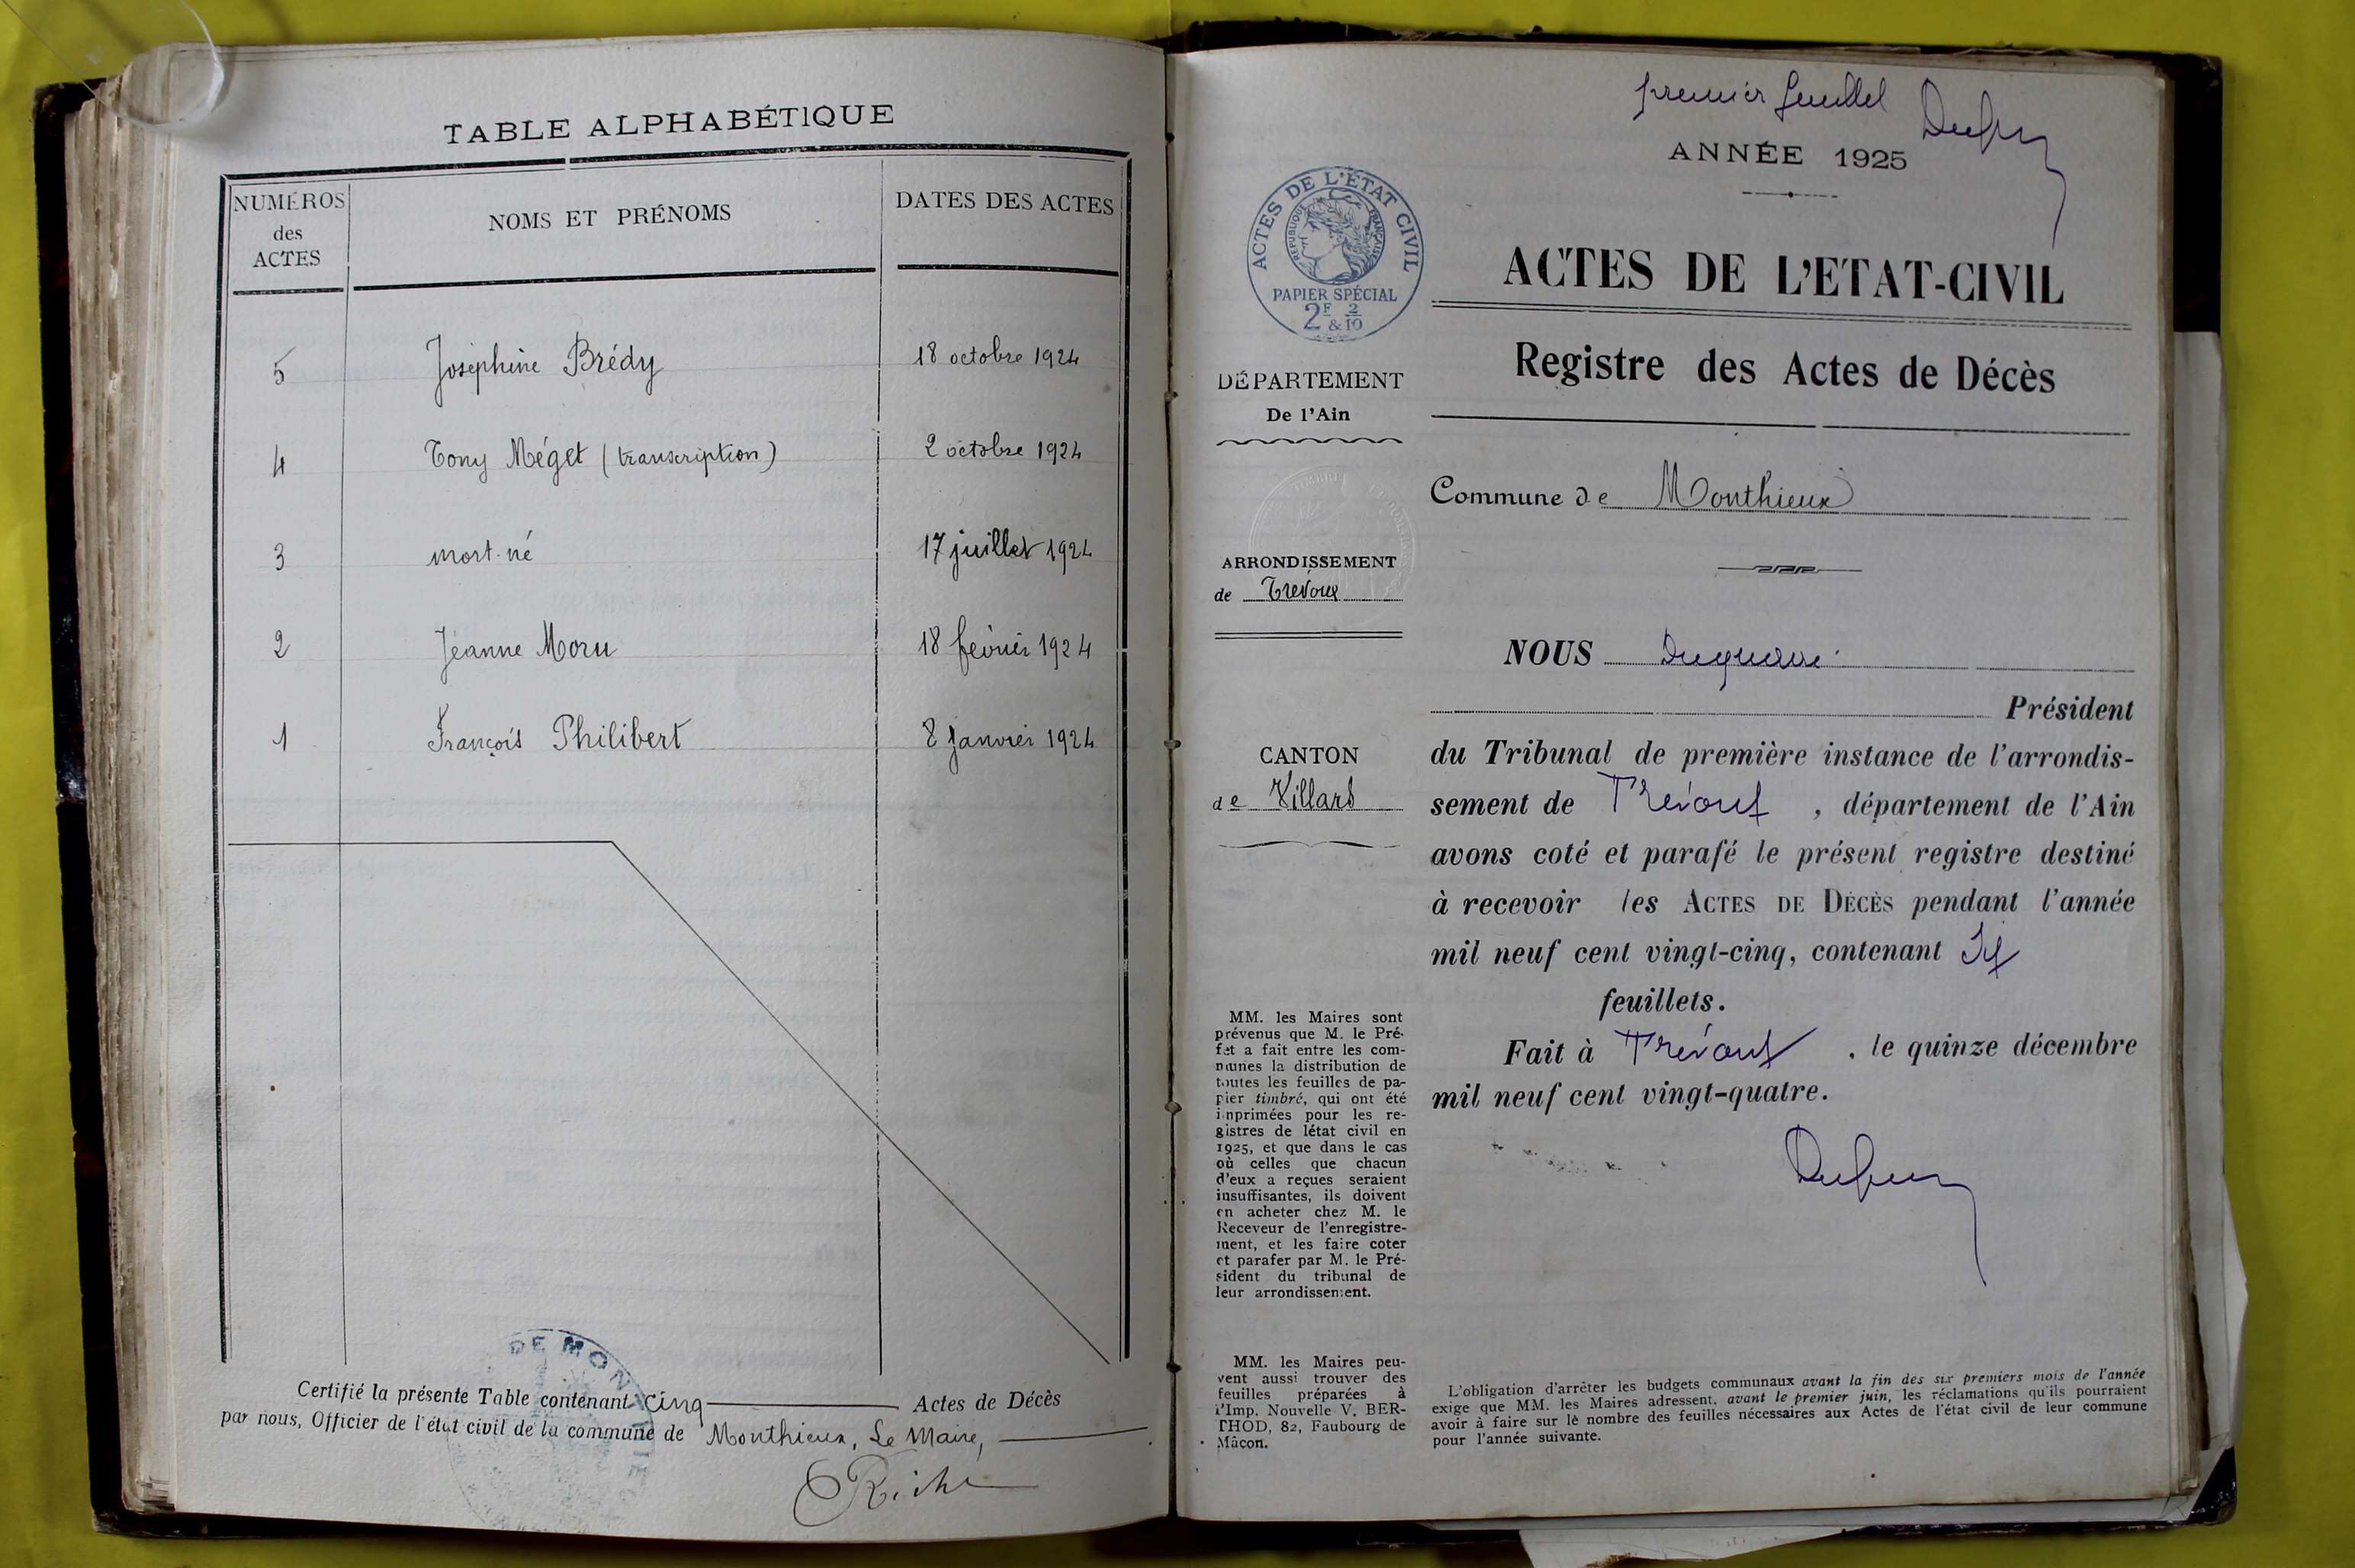 TABLE ALPHABÉTIQUE
NUMÉROS
des
ACTES
NOMS ET PRÉNOMS
DATES DES ACTES
5 Joséphine Brédy 18 octobre 1924
4 Tony Méget (transcription) 2 octobre 1924
3 mort-né 17 juillet 1924
2 Jeanne Moru 18 février 1924
1 François Philibert 8 janvier 1924
DE MON
Certifié la présente Table contenant cinq Actes de Décès
par nous, Officier de l'état civil de la commune de Monthieux, Le Maire,
premier feuillet
ANNÉE 1925
ACTES DE L'ÉTAT CIVIL
RÉPUBLIQUE FRANÇAISE
PAPIER SPÉCIAL
2F & 2/10
DÉPARTEMENT
De l'Ain
ARRONDISSEMENT
de Trévoux
CANTON
de Villars
MM. les Maires sont
prévenus que M. le Pré-
fet a fait entre les com-
munes la distribution de
toutes les feuilles de pa-
pier timbré, qui ont été
imprimées pour les re-
gistres de létat civil en
1925, et que dans le cas
où celles que chacun
d'eux a reçues seraient
insuffisantes, ils doivent
en acheter chez M. le
Receveur de l'enregistre-
ment, et les faire coter
et parafer par M. le Pré-
sident du tribunal de
leur arrondissement.
MM. les Maires peu-
vent aussi trouver des
feuilles préparées à
l'Imp. Nouvelle V. BER-
THOD, 82, Faubourg de
Mâcon.
ACTES DE L'ETAT-CIVIL
Registre des Actes de Décès
Commune de Monthieux
NOUS
Président
du Tribunal de première instance de l'arrondis-
sement de Trévoux, département de l'Ain
avons coté et parafé le présent registre destiné
à recevoir les ACTES DE DÉCÈS pendant l'année
mil neuf cent vingt-cinq, contenant
feuillets.
Fait à Trévoux, le quinze décembre
mil neuf cent vingt-quatre.
L'obligation d'arrêter les budgets communaux avant la fin des six premiers mois de l'année
exige que MM. les Maires adressent, avant le premier juin, les réclamations qu'ils pourraient
avoir à faire sur le nombre des feuilles nécessaires aux Actes de l'état civil de leur commune
pour l'année suivante.